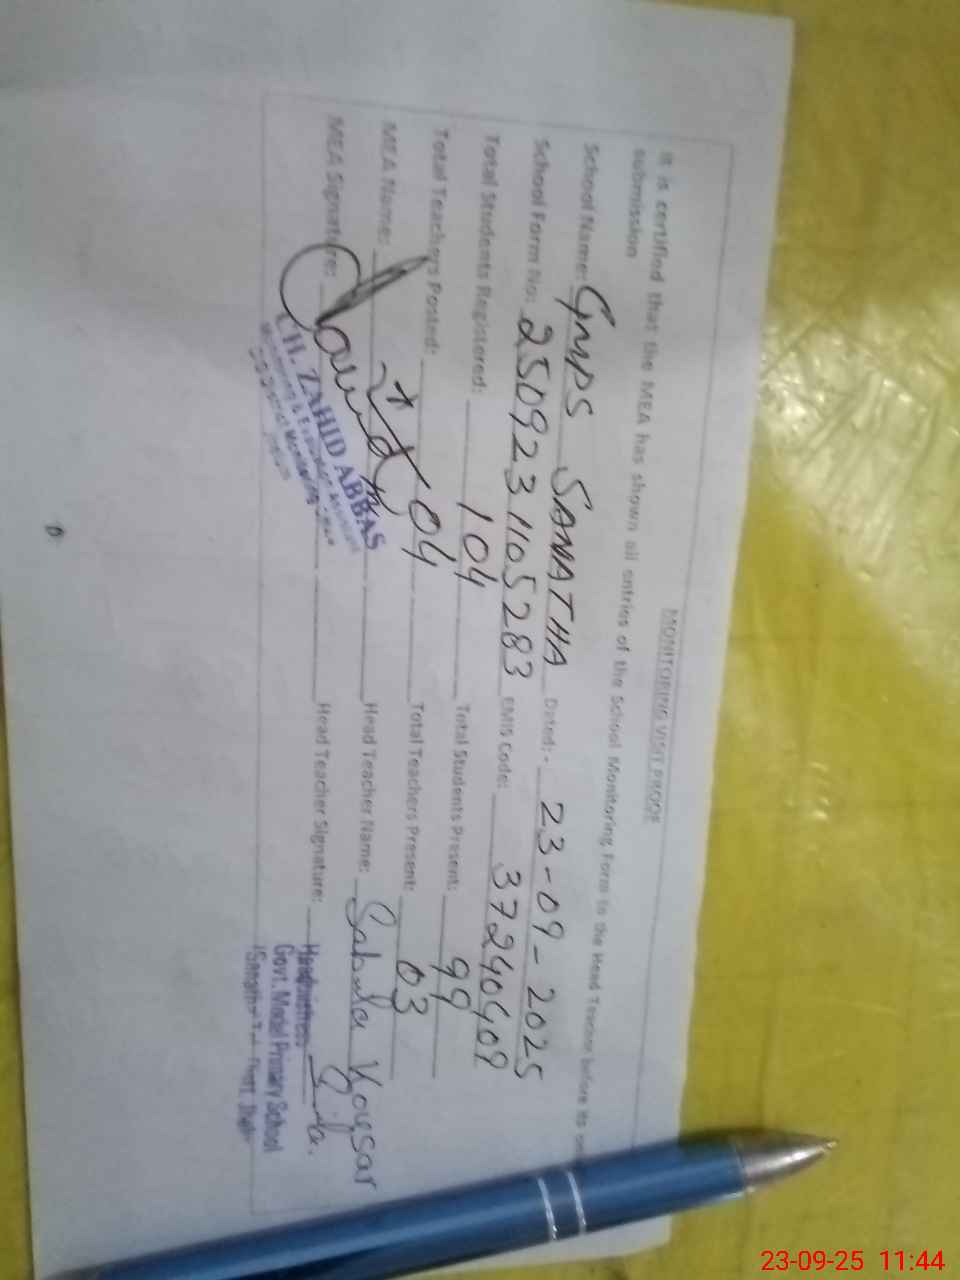 MONITORING VISIT PROOF
It is certified that the MEA has shown all entries of the School Monitoring Form to the Head Teacher before its
submission
School Name: GMPS SANATHA Dated:- 23-09-2025
School Form No: 2509231105283 EMIS Code: 37240409
Total Students Registered: 104 Total Students Present: 99
Total Teachers Posted: 04 Total Teachers Present: 03
MEA Name: Head Teacher Name: Kousar
MEA Signature: Head Teacher Signature:
CH. ZAHID ABBAS
Monitoring & Evaluation Assistant
District Monitoring
Headmistress
Govt. Model Primary School
23-09-25 11:44